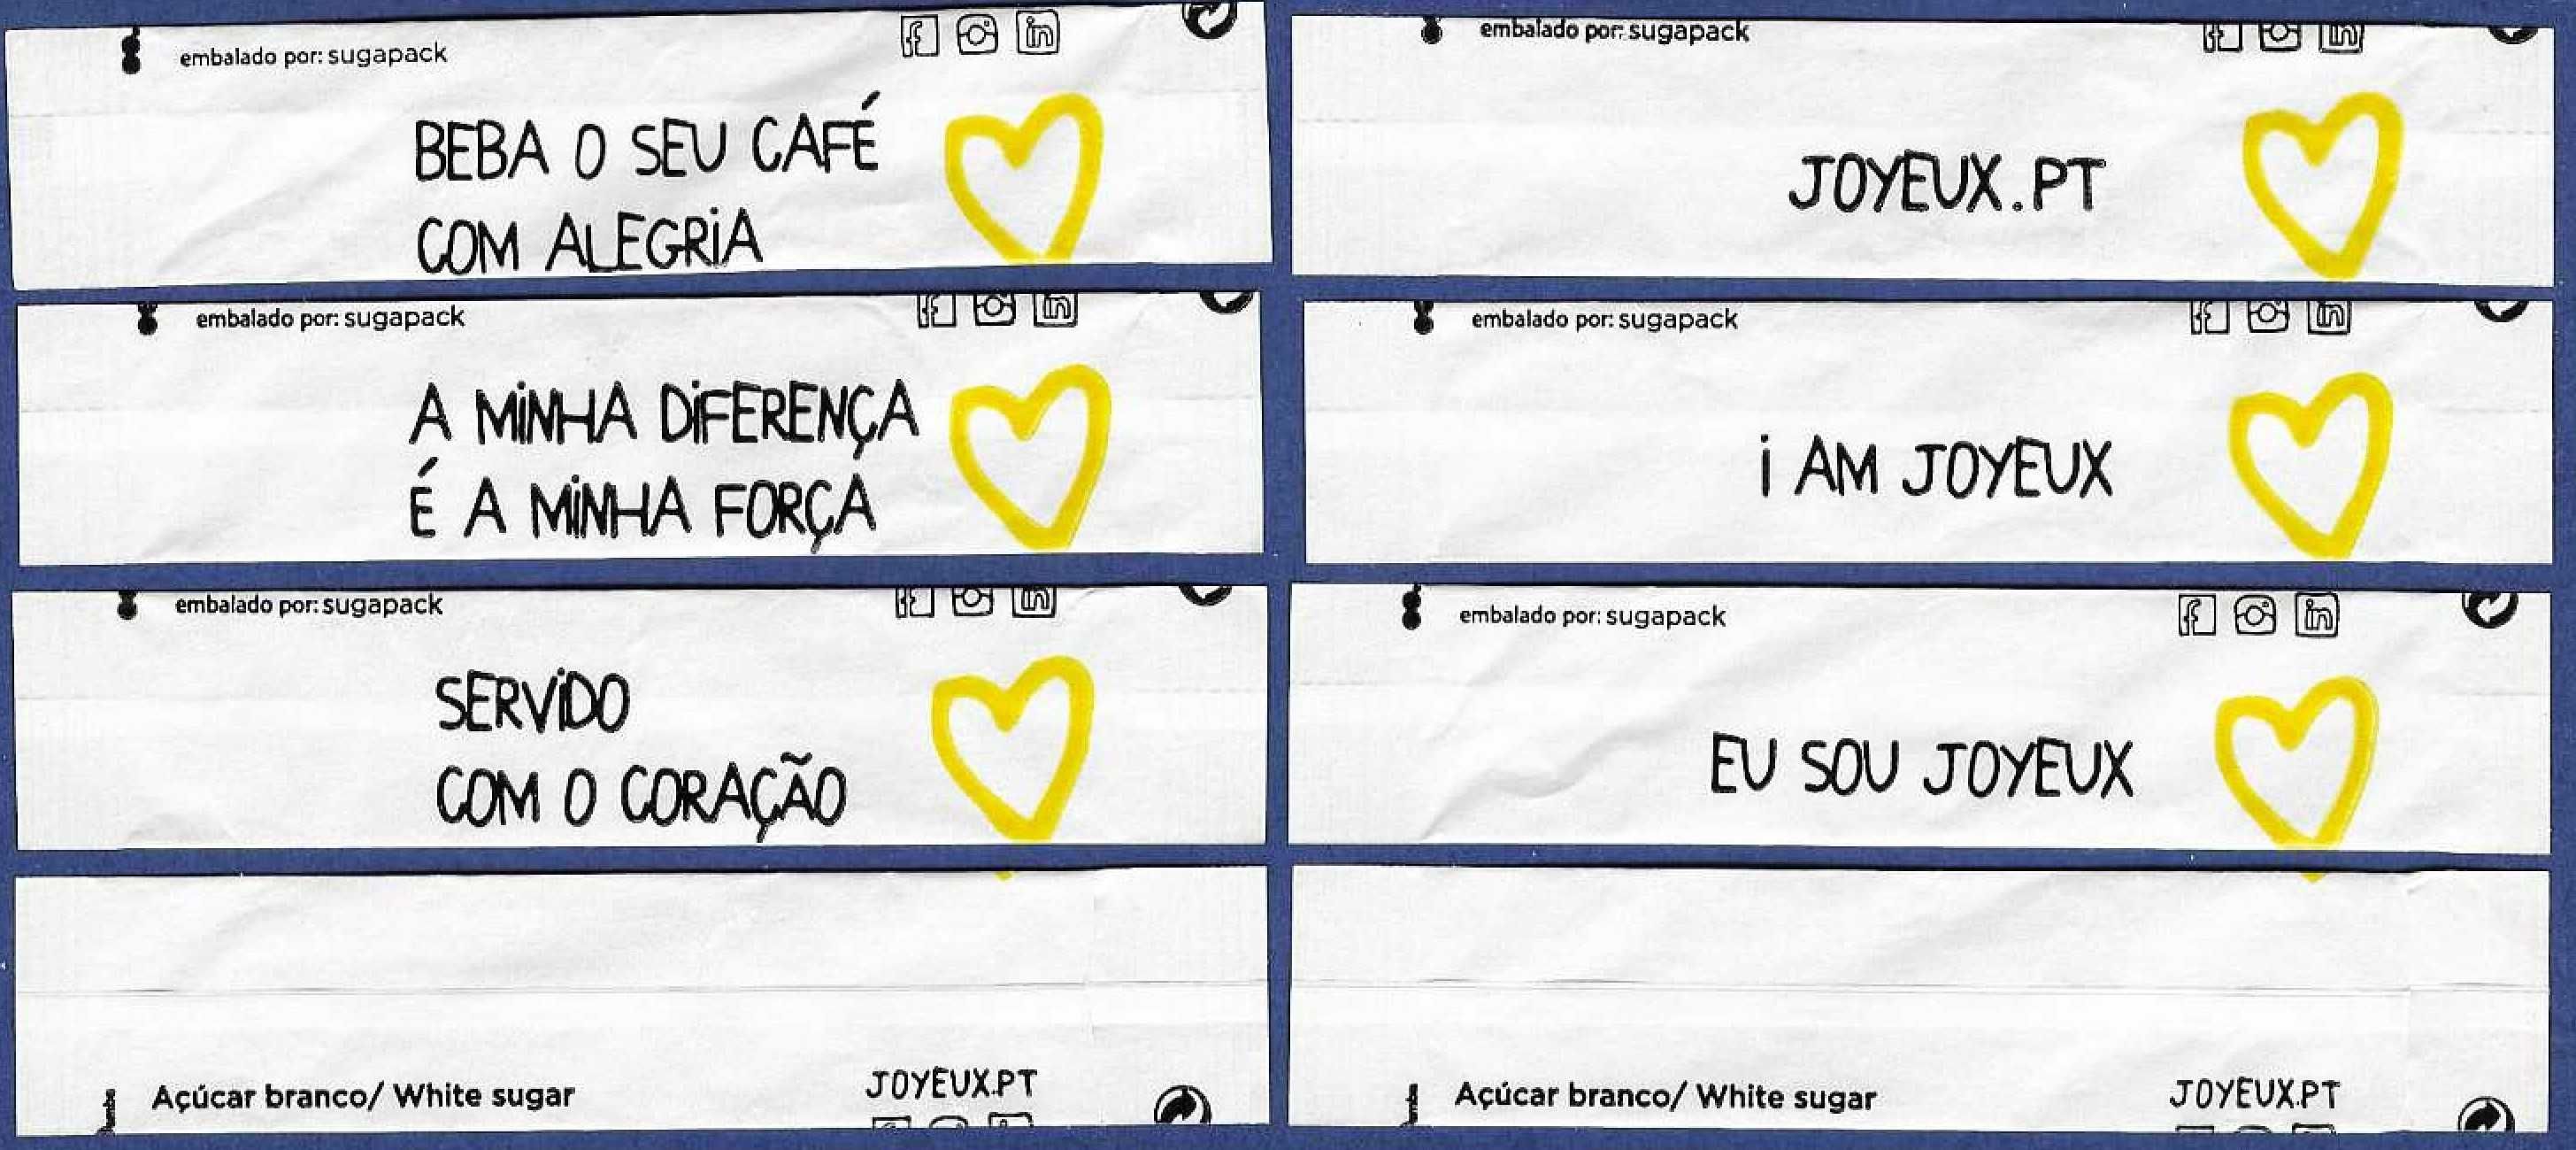 embalado por: sugapack
BEBA O SEU CAFÉ
COM ALEGRiA
embalado por: sugapack
JOYEUX.PT
embalado por: sugapack
A MiNHA DiFERENÇA
É A MiNHA FORÇA
embalado por: sugapack
i AM JOYEUX
embalado por: sugapack
SERViDO
COM O CORAÇÃO
embalado por: sugapack
EU SOU JOYEUX
Açúcar branco/ White sugar
JOYEUX.PT
Açúcar branco/ White sugar
JOYEUX.PT